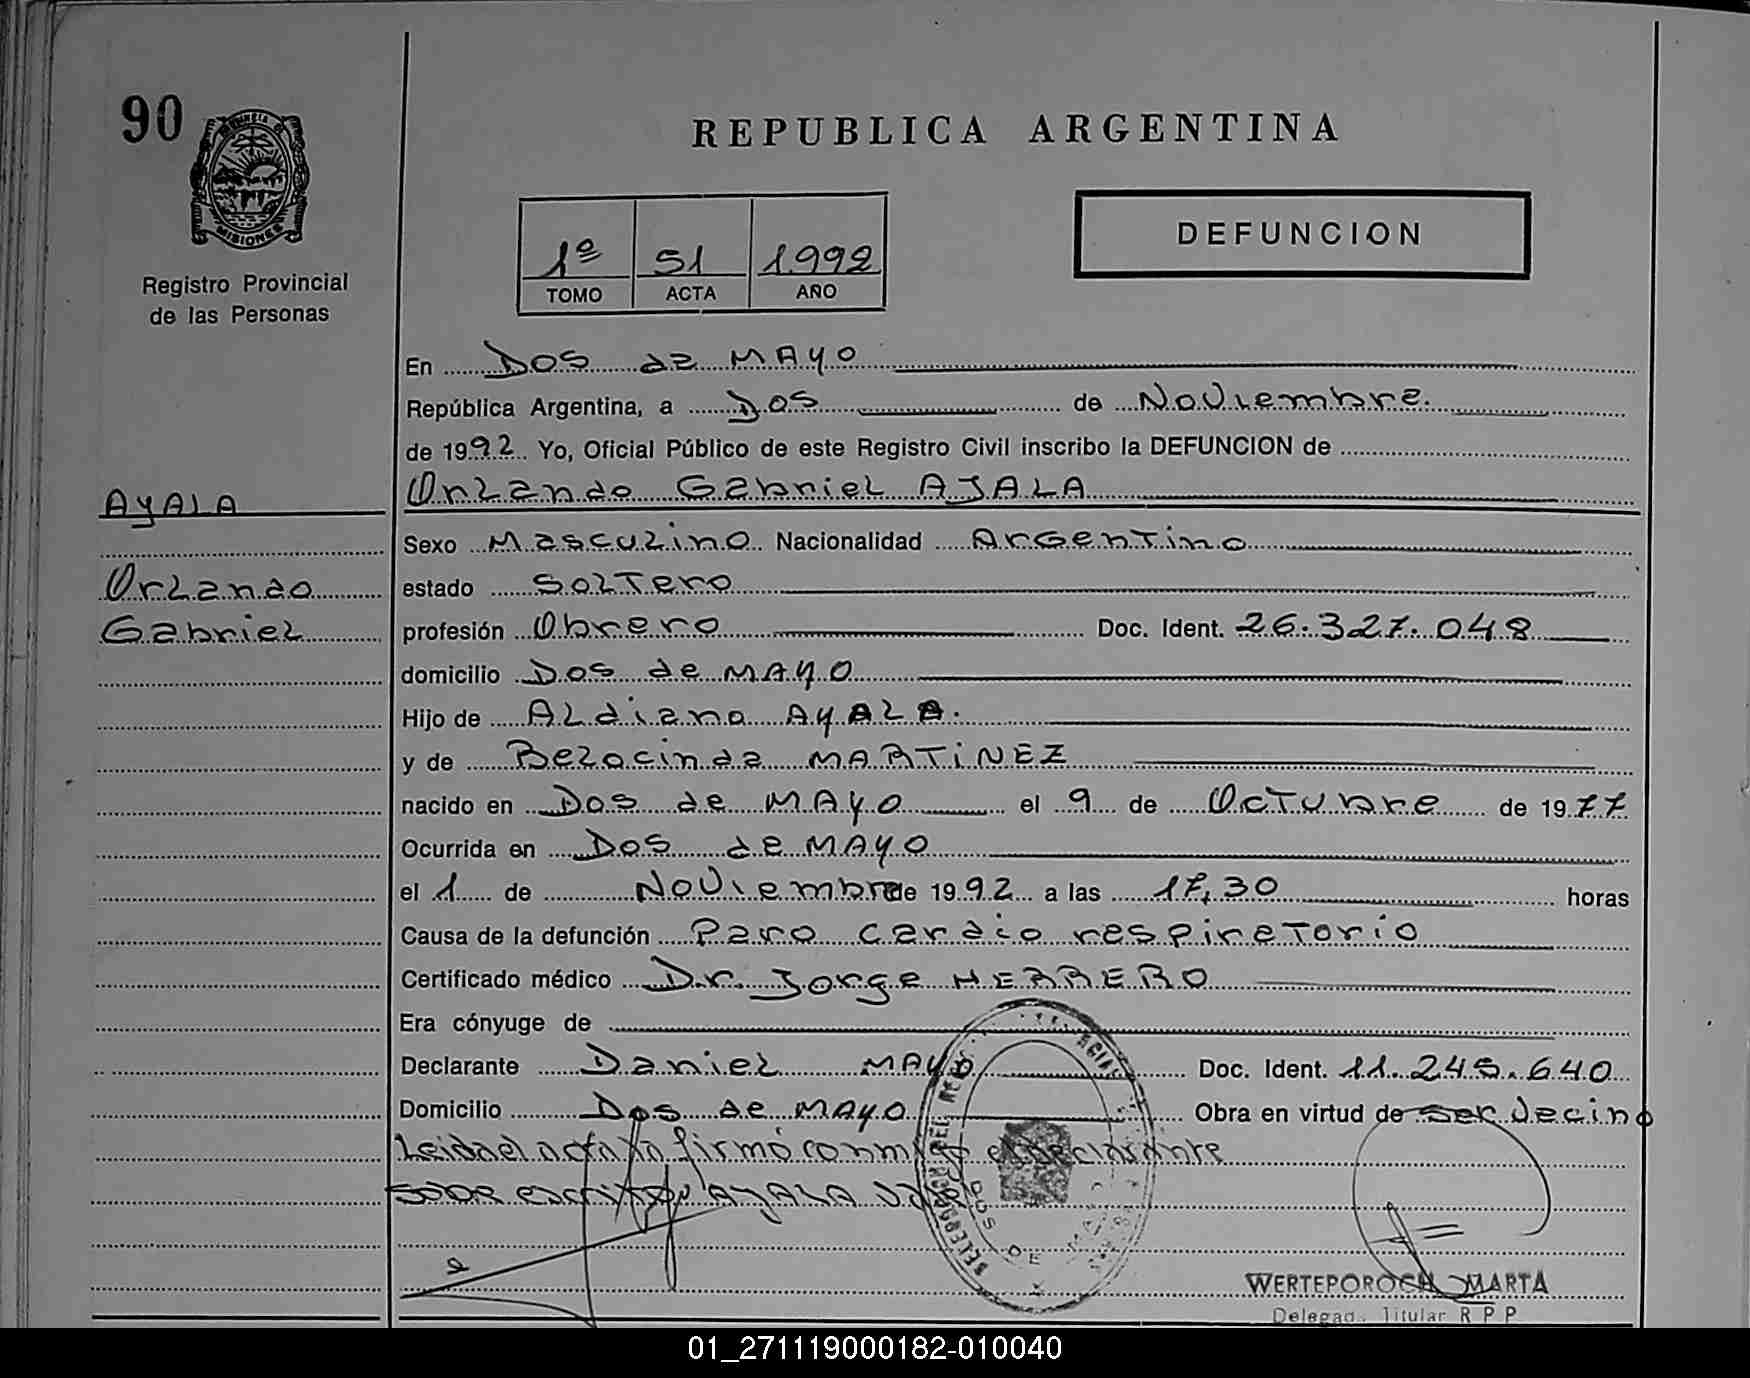 90
REPUBLICA ARGENTINA
Registro Provincial
de las Personas
1º 51 1992
TOMO ACTA AÑO
DEFUNCION
En Dos de MAYO
República Argentina, a Dos de Noviembre.
de 1992. Yo, Oficial Público de este Registro Civil inscribo la DEFUNCION de
AYALA
Orlando Gabriel AJALA
Sexo Masculino Nacionalidad Argentino
Orlando
estado Soltero
Gabriel
profesión Obrero Doc. Ident. 26.327.048
domicilio Dos de MAYO
Hijo de Aldiano AYALA.
y de Belocinda MARTiNEZ
nacido en Dos de MAYO el 9 de Octubre de 1977
Ocurrida en Dos de MAYO
el 1 de Noviembre de 1992 a las 17,30 horas
Causa de la defunción Paro cardio respiratorio
Certificado médico Dr. Jorge HERRERO
Era cónyuge de
Declarante Daniel MAYO Doc. Ident. 11.245.640
Domicilio Dos de MAYO Obra en virtud de ser vecino
Leida el acta la firmó conmigo el declarante
Sobre escrito AYALA
DOS DE
WERTEPOROCH MARTA
Delegad. Titular R P P
01_271119000182-010040